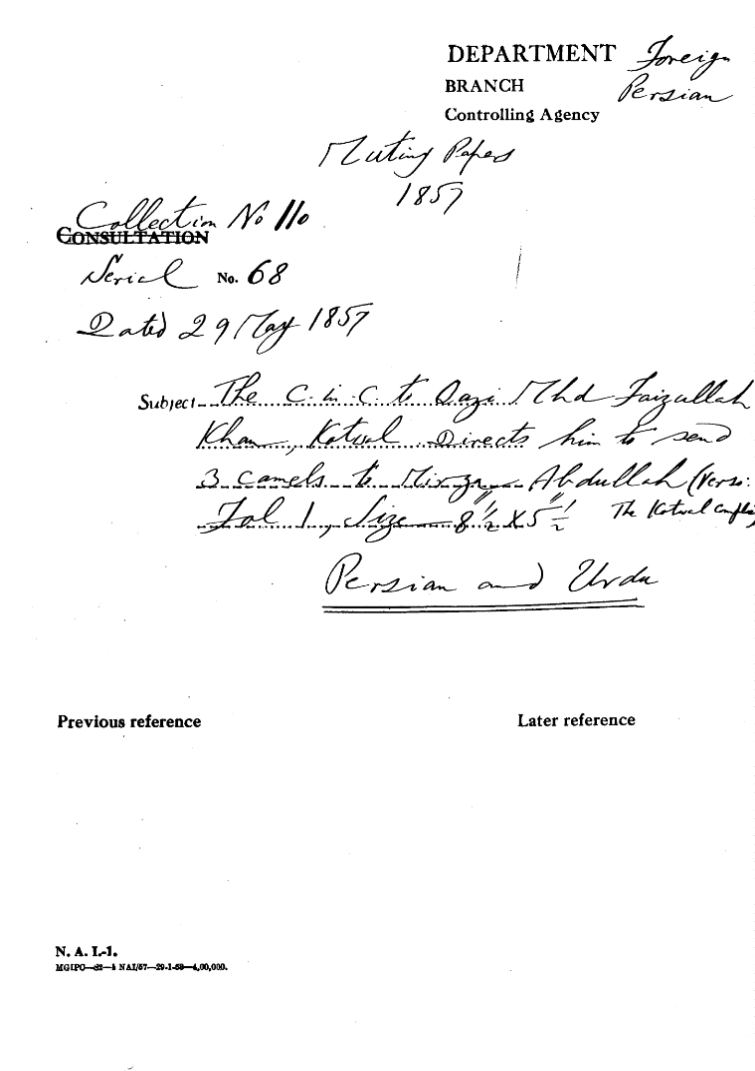 DEPARTMENT Foreign
BRANCH Persian
Controlling Agency
Mutiny Papers
1857
Collection No 110
CONSULTATION
Serial No. 68
Dated 29 May 1857
Subject The C. in. C to Qazi Mhd Faizullah
Khan, Kotwal. Directs him to send
3 camels to Mirza Abdullah (Verso:
Fol 1, Size 8½" X 5½" The Kotwal
Persian and Urdu
Previous reference Later reference
N. A. I.-1.
NAI/57—29-1-58—4,00,000.